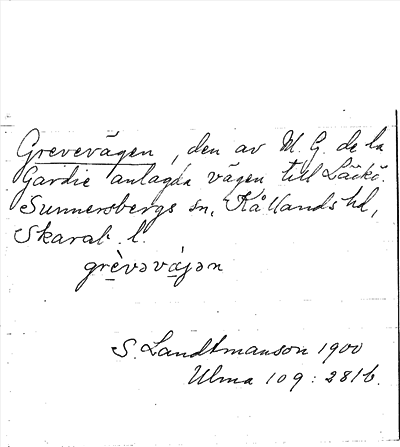 Grevevägen, den av M. G. de la
Gardie anlagda vägen till Läckö.
Sunnersbergs sn, Kållands hd,
Skarab. l.
grèvəvájən
S. Landtmanson 1900
Ulma 109: 281 b.